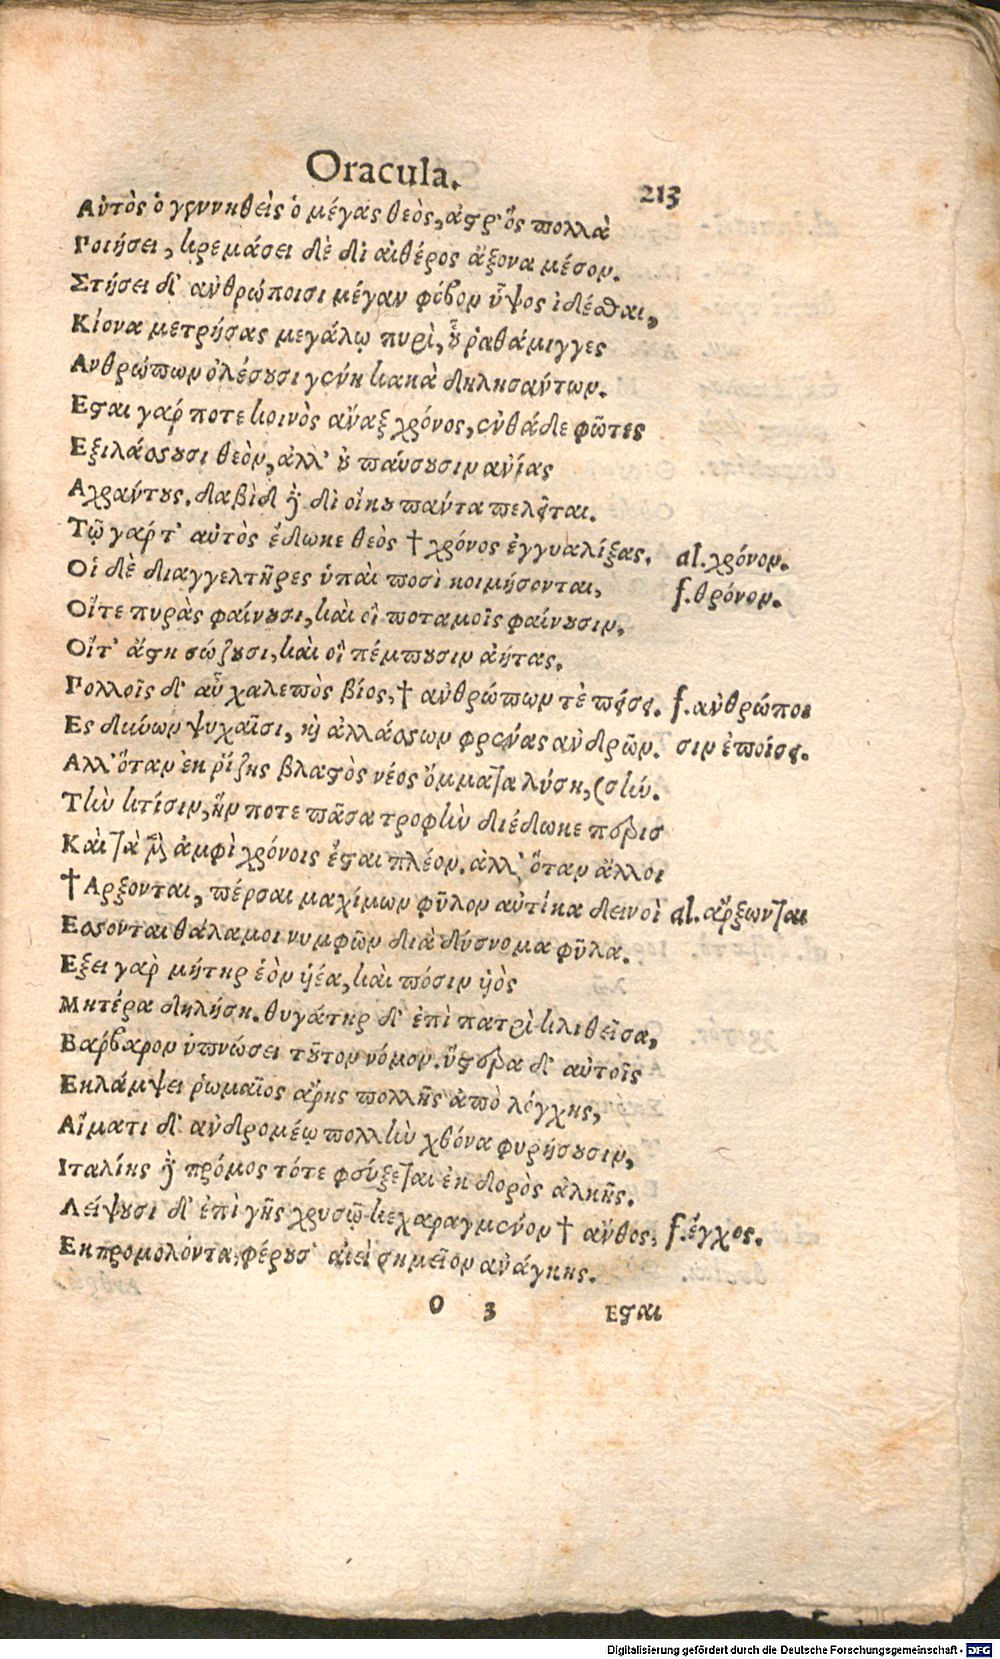 Oracula. 213
Αὐτὸς ὁ γεννηθεὶς ὁ μέγας θεὸς, ἄστρ' ὃς πολλὰ
Ποιήσει, κρεμάσει δὲ δι αἰθέρος ἄξονα μέσον.
Στήσει δ' ἀνθρώποισι μέγαν φόβον ὕψος ἰδέσθαι,
Κίονα μετρήσας μεγάλῳ πυρὶ, οὗ ῥαθάμιγγες
Ανθρώπων ὀλέσουσι γένη κακὰ δηλησάντων.
Εσται γάρ ποτε κοινὸς ἄναξ χρόνος, ἐνθάδε φῶτες
Εξιλάσουσι θεὸν, ἀλλ' οὐ παύσουσιν ἀνίας
Αχράντους. δαβὶδ δὲ δι οἴκου πάντα πελεῖται.
Τῷ γάρ τ' αὐτὸς ἔδωκε θεὸς † χρόνος ἐγγυαλίξας. al. χρόνον.
Οἱ δὲ διαγγελτῆρες ὑπαὶ ποσὶ κοιμήσονται, f. θρόνον.
Οἵτε πυρὰς φαίνουσι, καὶ οἳ ποταμοῖς φαίνουσιν,
Οἵτ' ἄστη σώζουσι, καὶ οἳ πέμπουσιν ἀήτας.
Πολλοῖς δ' αὖ χαλεπὸς βίος, † ἀνθρώπων τὲ πεσεῖ. f. ἀνθρώποι
Ες δύνων ψυχαῖσι, καὶ ἀλλάσσων φρένας ἀνδρῶν. σιν ἐποίσει.
Αλλ' ὅταν ἐκ ῥίζης βλαστὸς νέος ὄμματα λύσῃ, (σὴν.
Τὴν κτίσιν, ἥν ποτε πᾶσα τροφὴν διέδωκε περισ
Καὶ τὰ μὲν ἀμφὶ χρόνοις ἔσται πλέον. ἀλλ' ὅταν ἄλλοι
† Αρξονται, πέρσαι μαχίμων φῦλον αὐτίκα δεινοὶ al. ἄρξωνται
Εσσονται θάλαμοι νυμφῶν διὰ δύσνομα φῦλα.
Εξει γὰρ μήτηρ ἑὸν ὑιέα, καὶ πόσιν ὑιὸς
Μητέρα δηλήσῃ. θυγάτηρ δ' ἐπὶ πατρὶ κλιθεῖσα,
Βάρβαρον ὑπνώσει τοῦτον νόμον. ὕστερα δ' αὐτοῖς
Εκλάμψει ῥωμαῖος ἄρης πολλῆς ἀπὸ λόγχης,
Αἵματι δ' ἀνδρομέῳ πολλὴν χθόνα φυρήσουσιν,
Ιταλίης δὲ πρόμος τότε φεύξεται ἐκ δορὸς ἀλκῆς.
Λείψουσι δ' ἐπὶ γῆς χρυσῷ κεχαραγμένον † ἄνθος, f. ἔγχος.
Εκπρομολόντα, φέρουσ' αἰεὶ σημεῖον ἀνάγκης.
O 3 Εσται
Digitalisierung gefördert durch die Deutsche Forschungsgemeinschaft - DFG